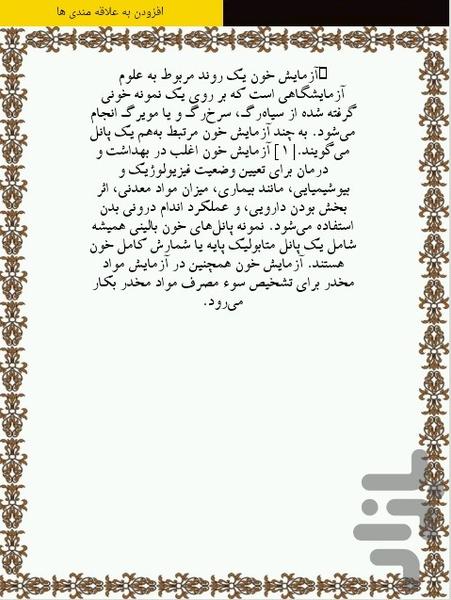 افزودن به علاقه مندی ها
آزمایش خون یک روند مربوط به علوم
آزمایشگاهی است که بر روی یک نمونه خونی
گرفته شده از سیاه‌رگ، سرخ‌رگ و یا مویرگ انجام
می‌شود. به چند آزمایش خون مرتبط به‌هم یک پانل
می‌گویند.[۱] آزمایش خون اغلب در بهداشت و
درمان برای تعیین وضعیت فیزیولوژیک و
بیوشیمیایی، مانند بیماری، میزان مواد معدنی، اثر
بخش بودن دارویی، و عملکرد اندام درونی بدن
استفاده می‌شود. نمونه پانل‌های خون بالینی همیشه
شامل یک پانل متابولیک پایه یا شمارش کامل خون
هستند. آزمایش خون همچنین در آزمایش مواد
مخدر برای تشخیص سوء مصرف مواد مخدر بکار
می‌رود.
بازار